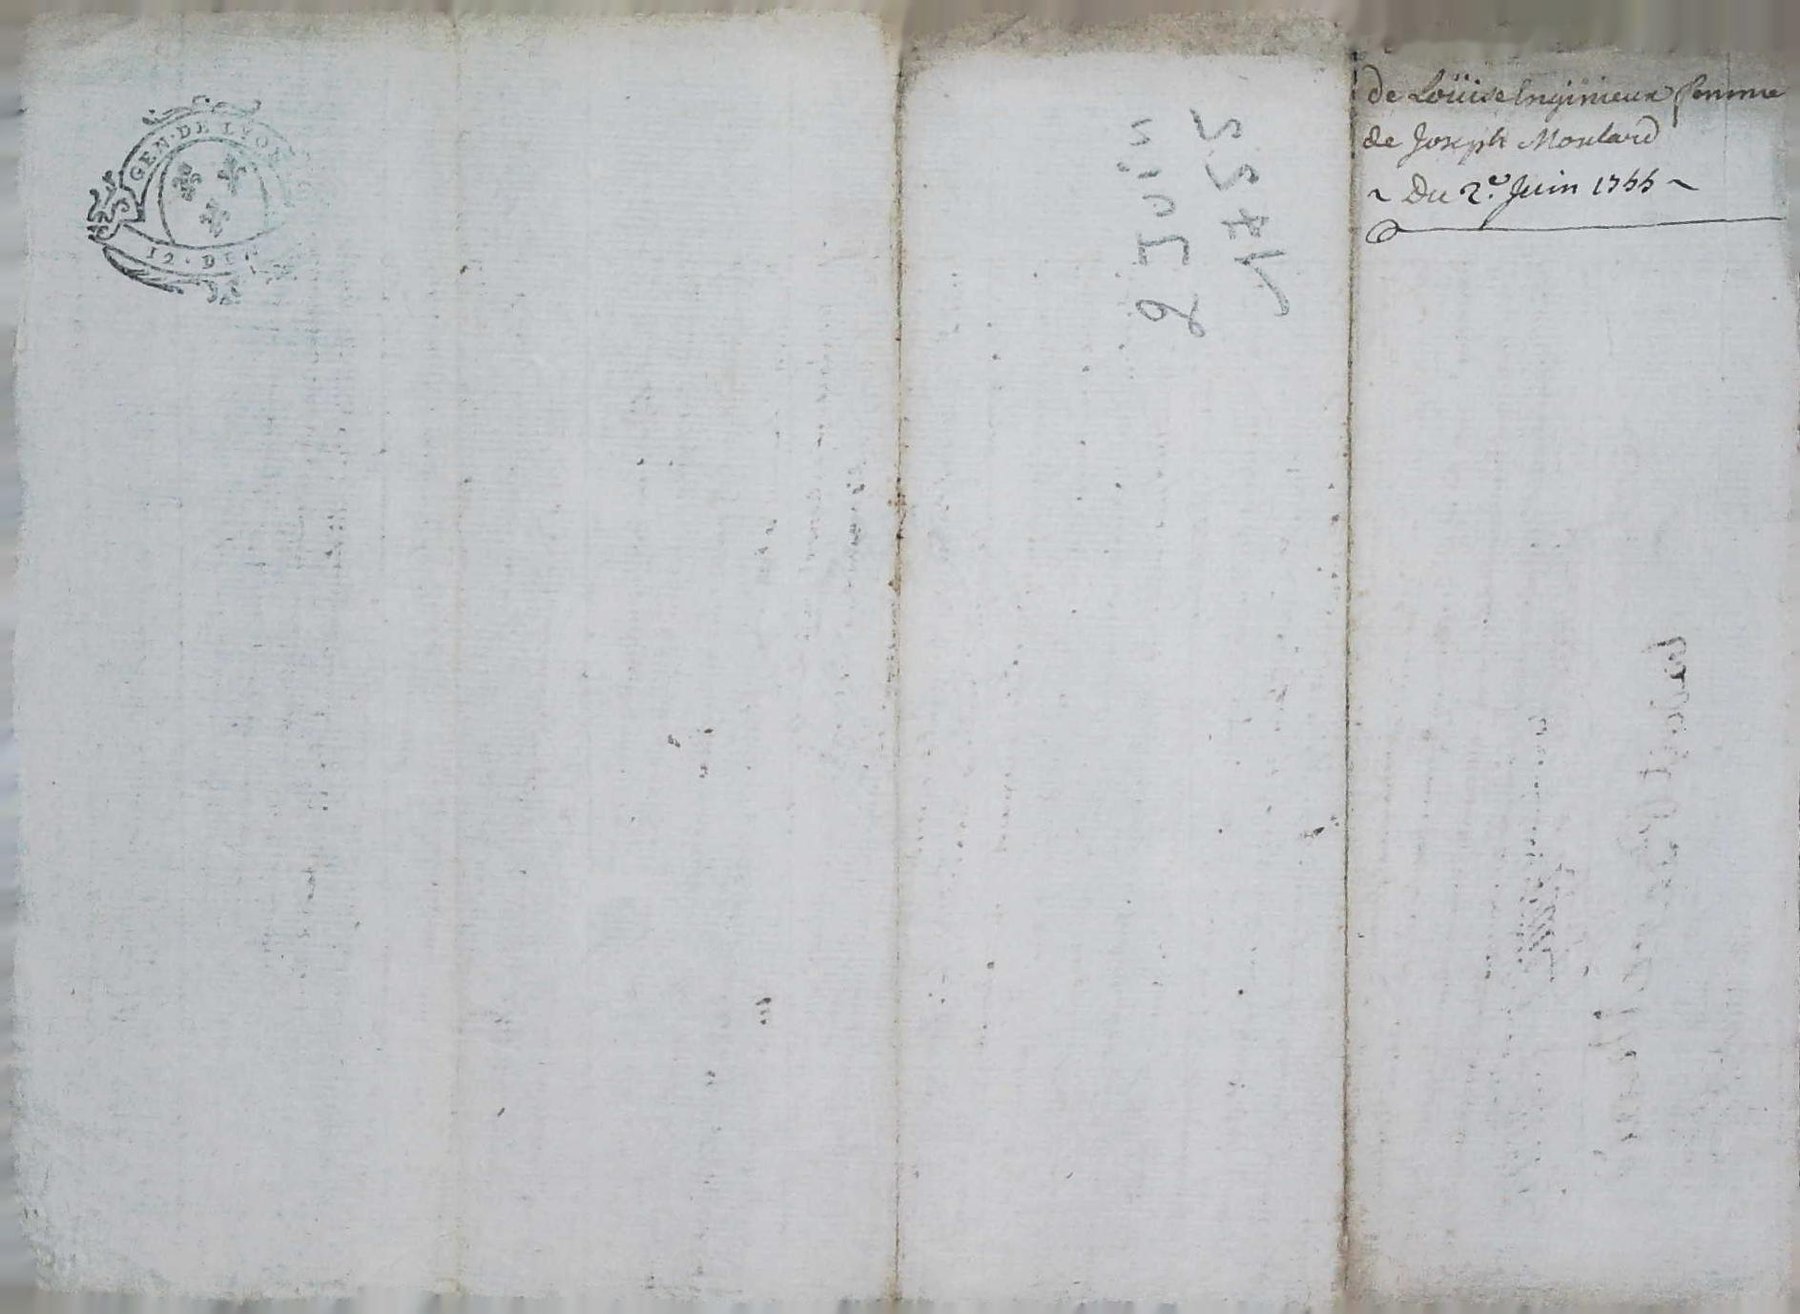 GEN·DE LYON
12·DEN
2 Juin
1755
de Loüise Inginieux femme
de Joseph Moulard
~ Du 2.e Juin 1755 ~